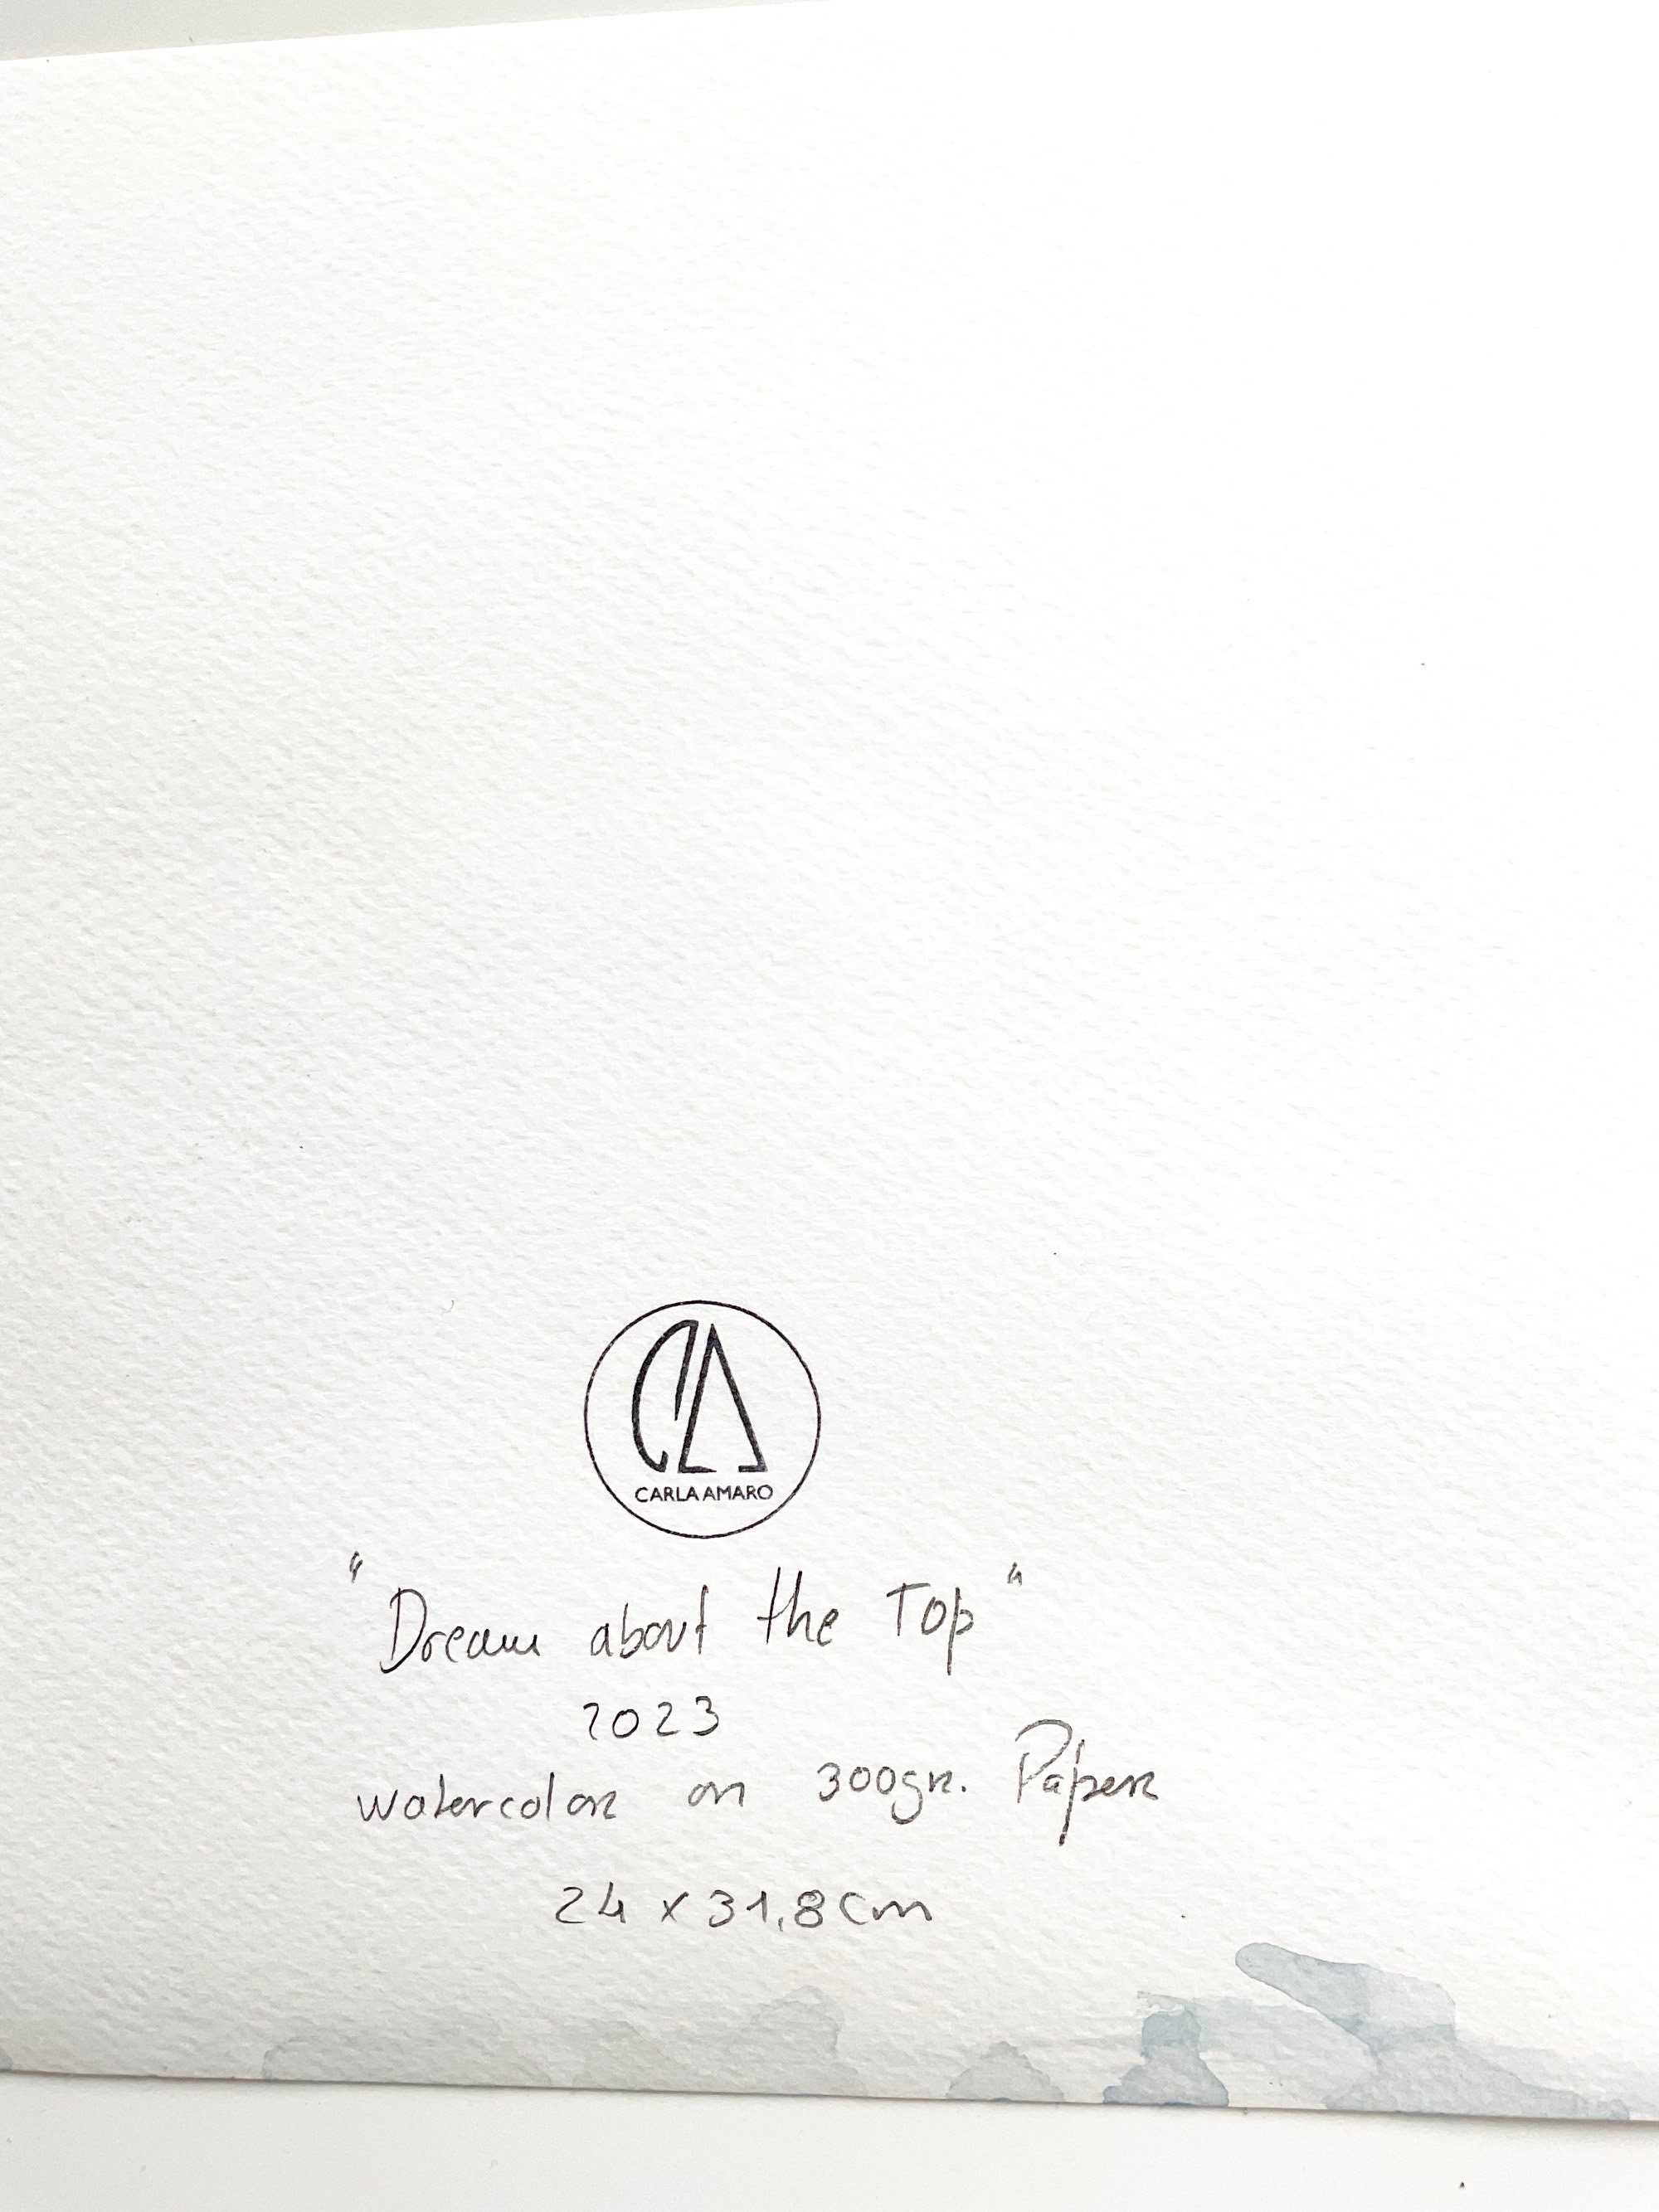 CA
CARLA AMARO
"Dream about the Top"
2023
watercolor on 300gr. Paper
24 x 31,8cm